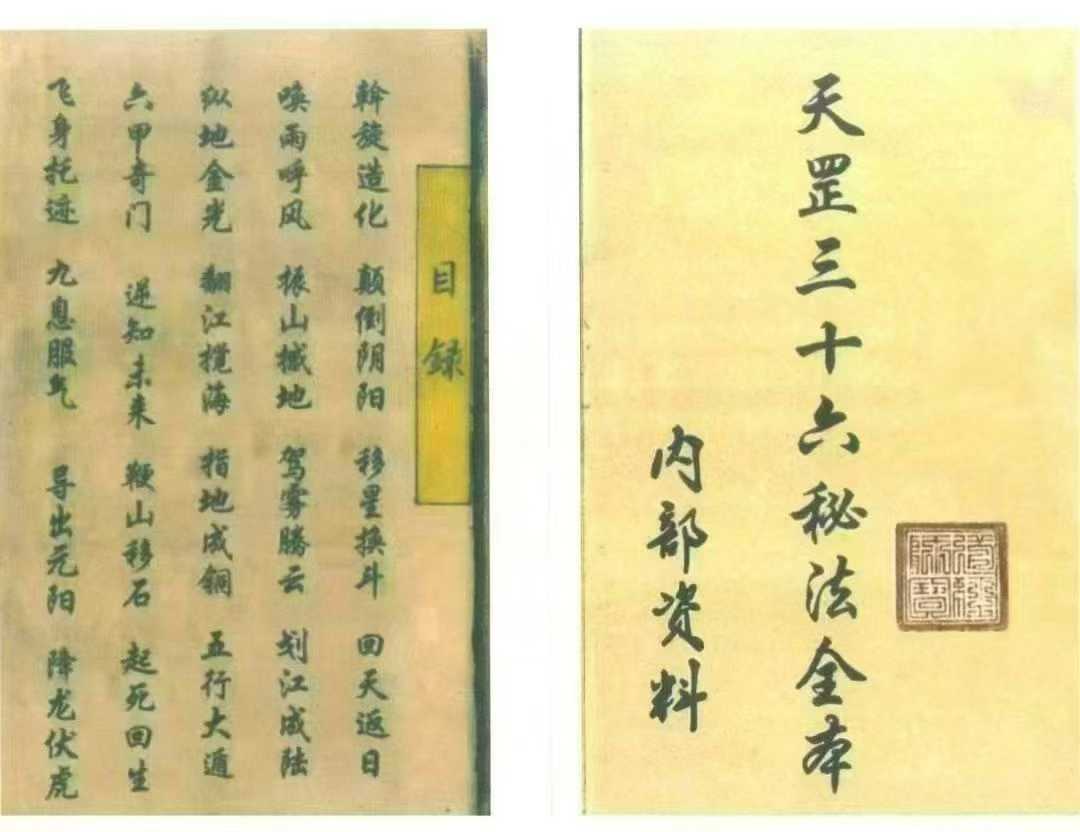 天罡三十六秘法全本
内部资料
目录
斡旋造化 颠倒阴阳 移星换斗 回天返日
唤雨呼风 振山撼地 驾雾腾云 划江成陆
纵地金光 翻江搅海 指地成钢 五行大遁
六甲奇门 逆知未来 鞭山移石 起死回生
飞身托迹 九息服气 导出元阳 降龙伏虎